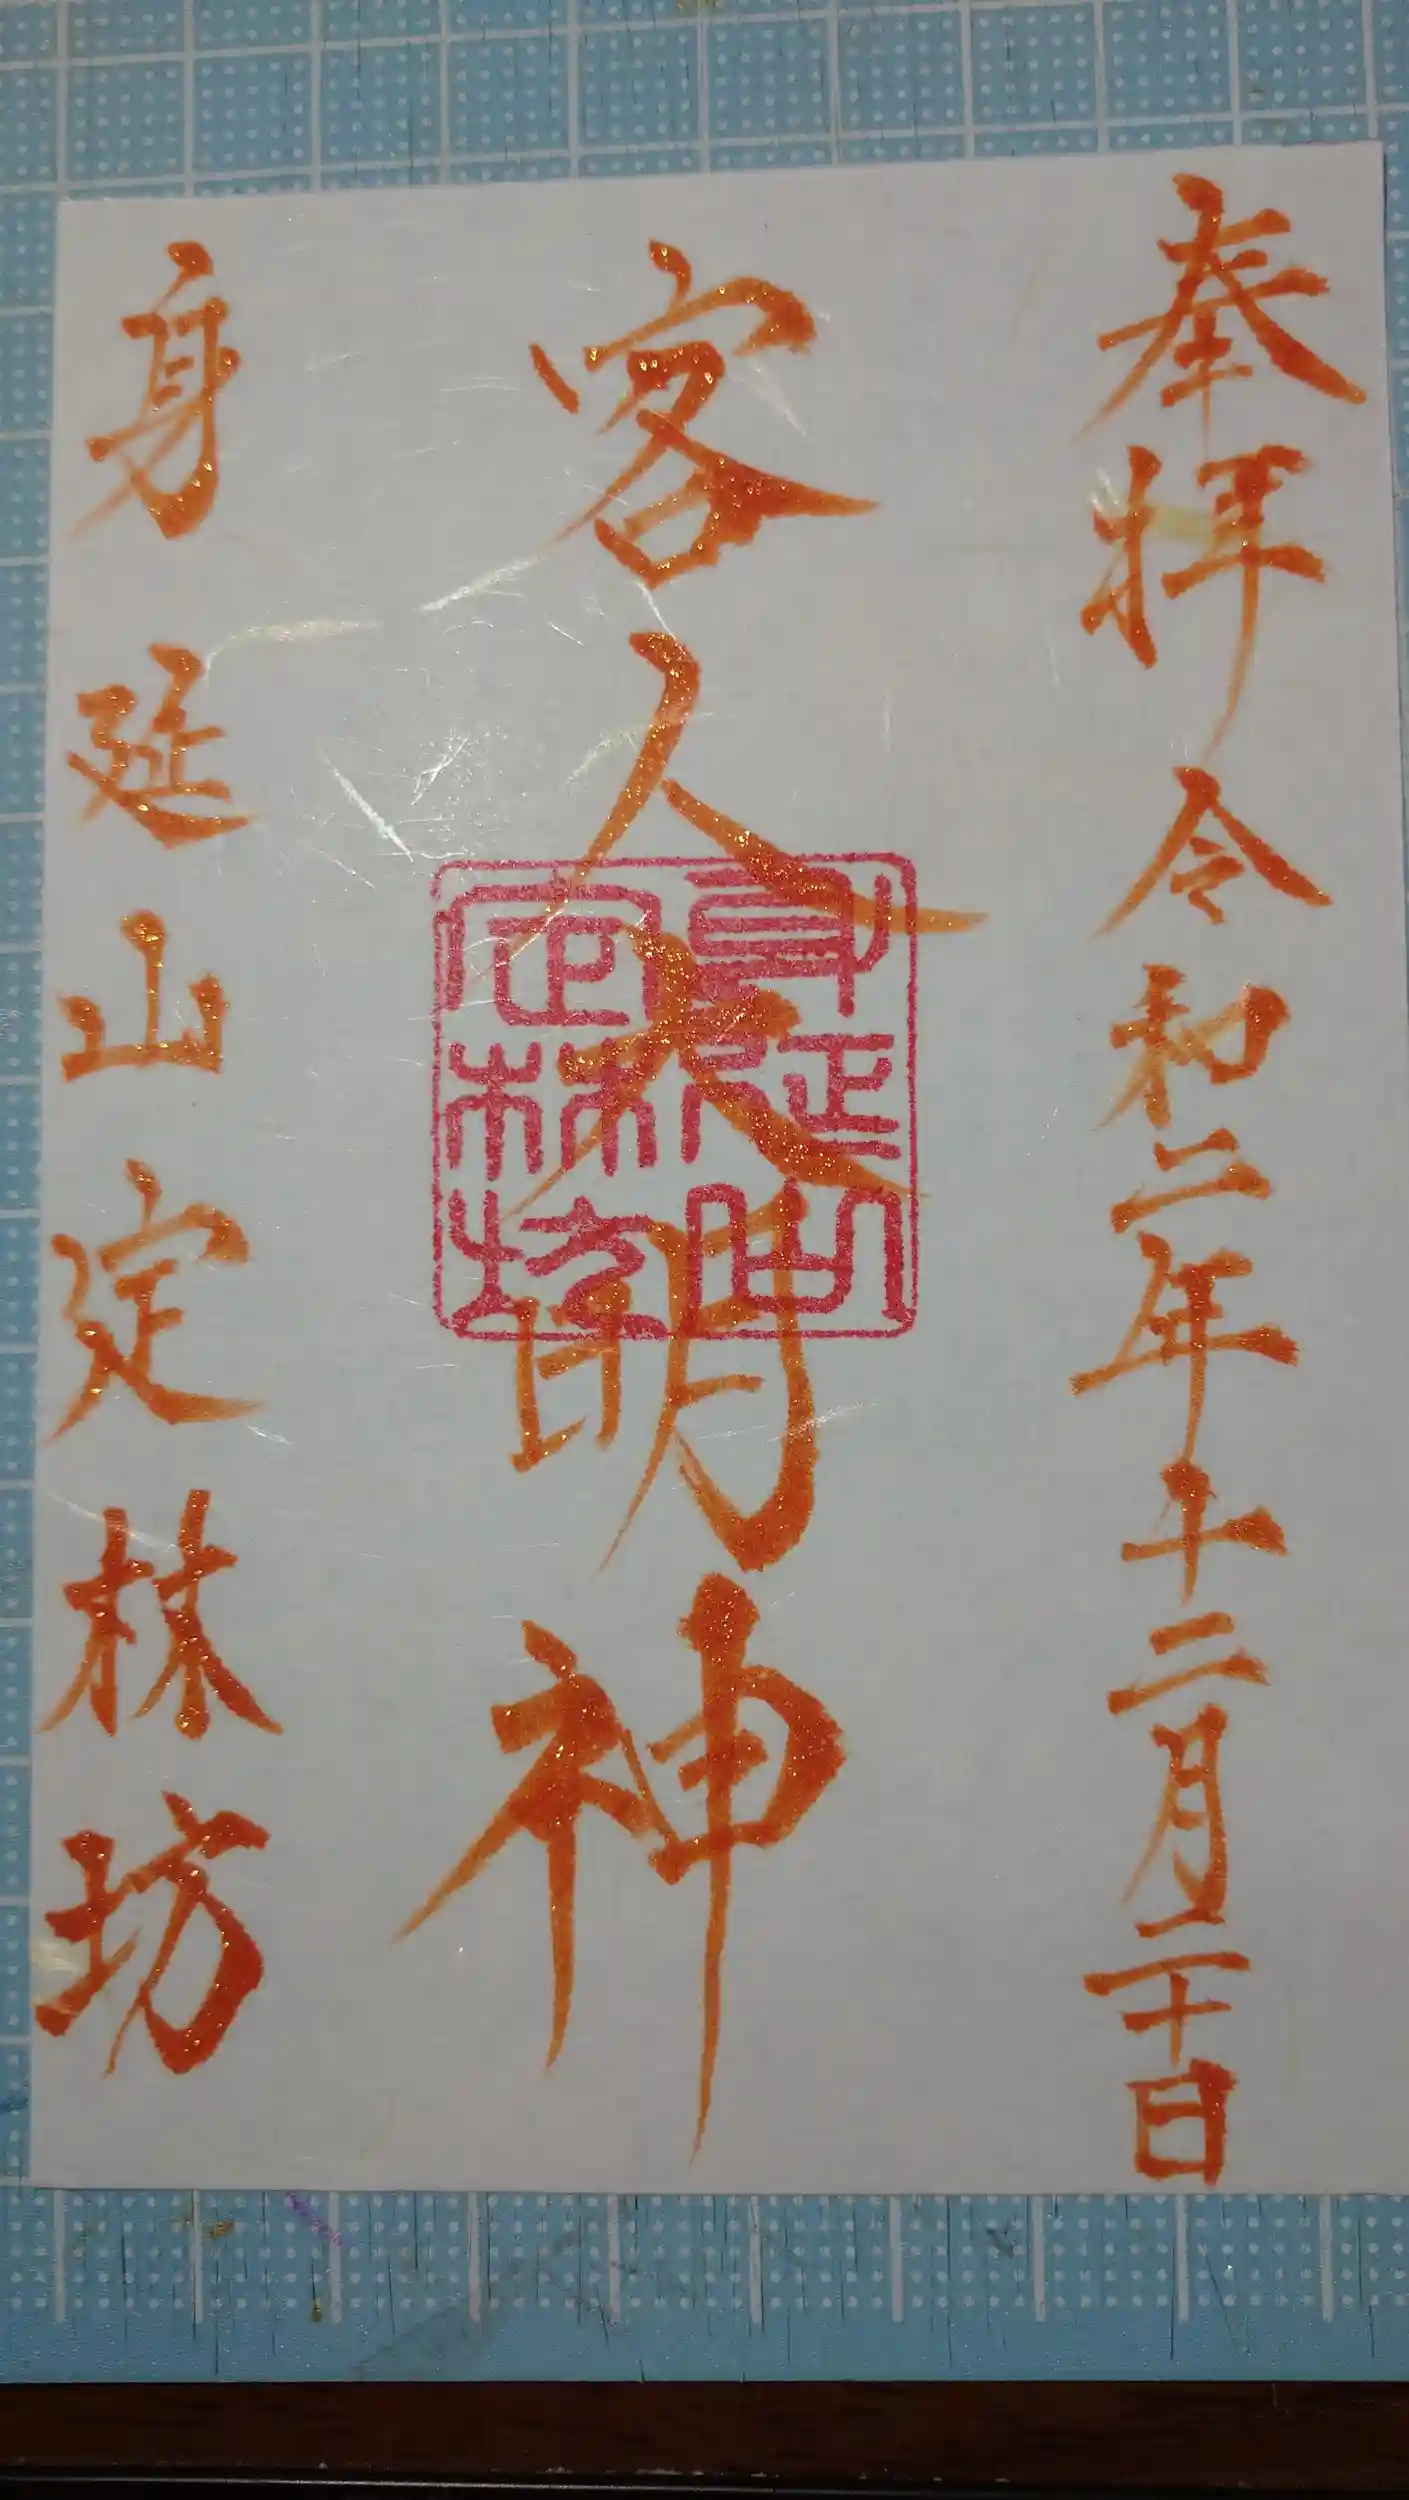 奉拝 令和二年十二月二十日
客人大明神
身延山定林坊
身延山
定林坊